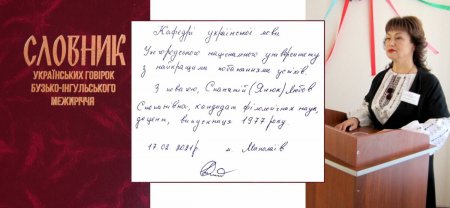 СЛОВНИК
УКРАЇНСЬКИХ ГОВІРОК
БУЗЬКО-ІНГУЛЬСЬКОГО
МЕЖИРІЧЧЯ
Кафедрі української мови
Ужгородського національного університету
з найкращими побажаннями успіхів.
З повагою, Спанатій (Янюк) Любов
Степанівна, кандидат філологічних наук,
доцент, випускниця 1977 року.
17.02.2021р м. Миколаїв